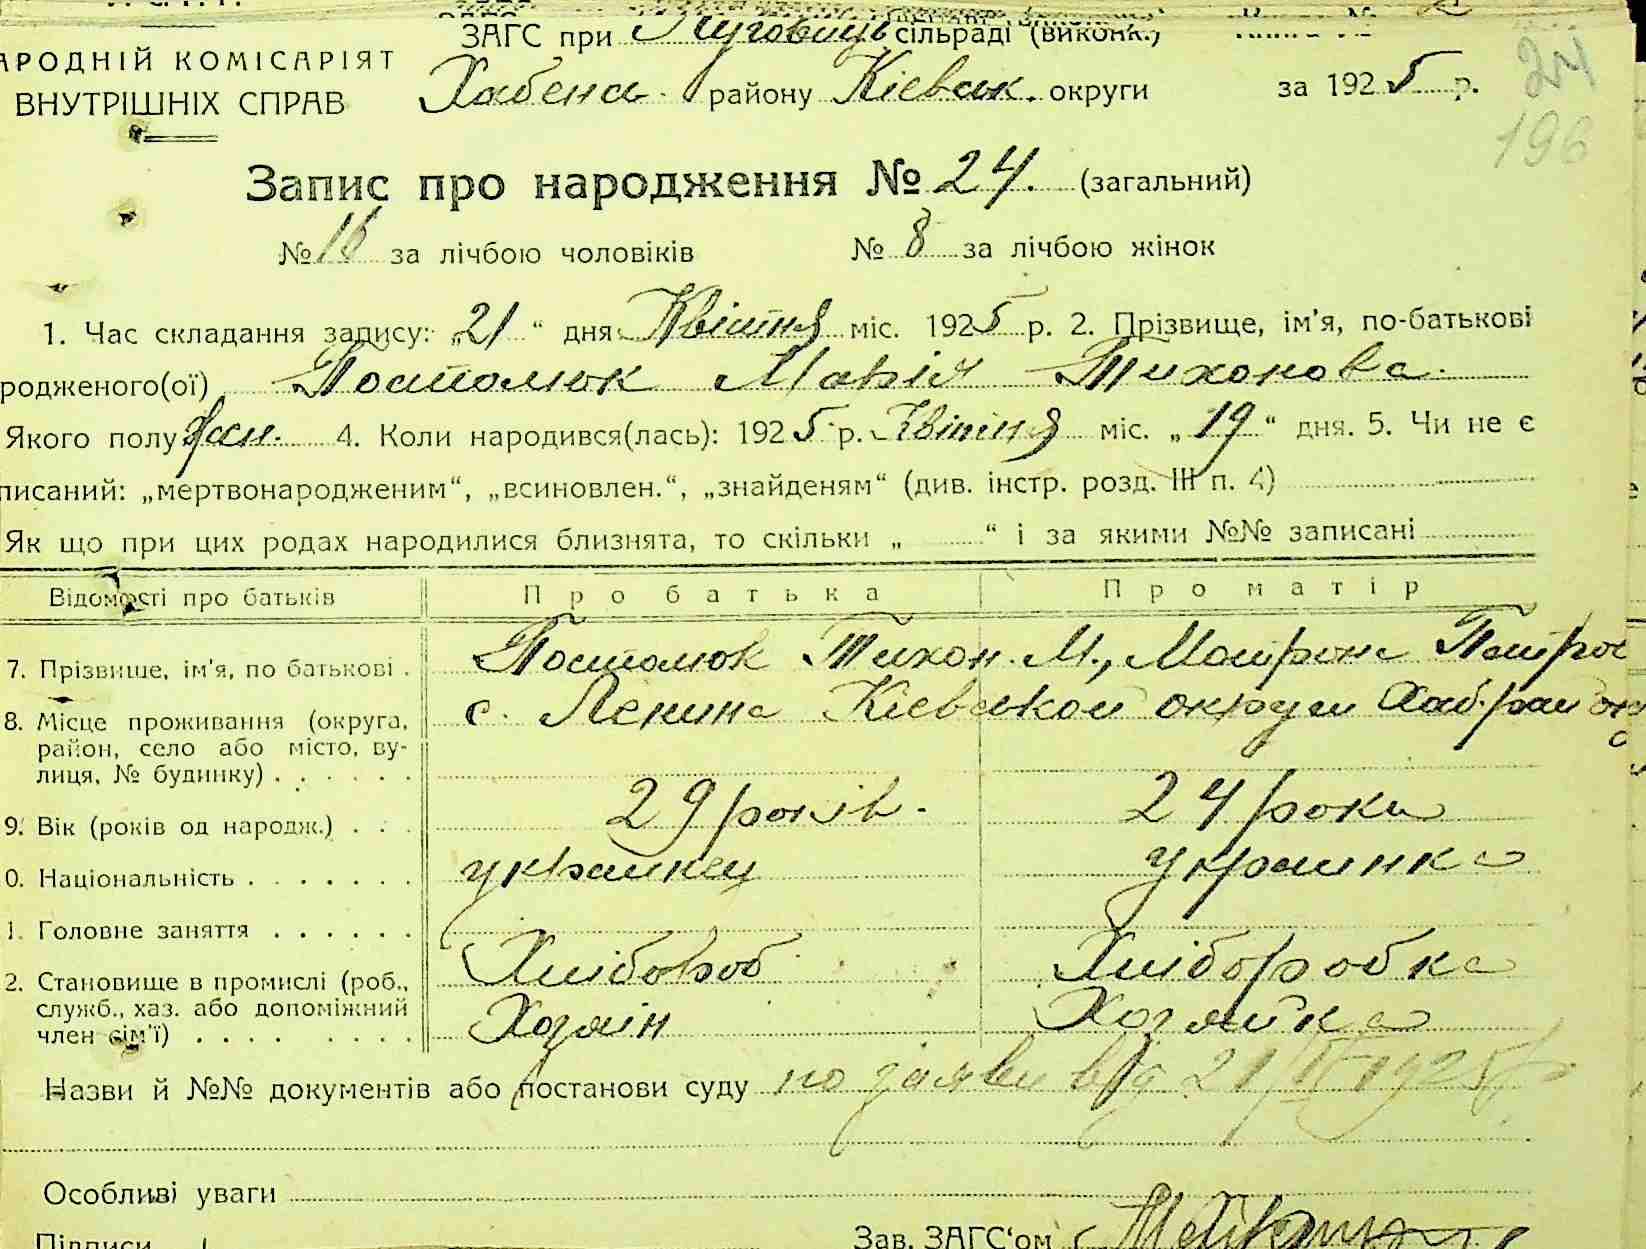 ЗАГС при Луговиць сільраді (виконк.)
АРОДНІЙ КОМІСАРІЯТ
ВНУТРІШНІХ СПРАВ
Хабенс. району Києвськ. округи за 1925 р.
24
196
Запис про народження № 24. (загальний)
№ 16 за лічбою чоловіків № 8 за лічбою жінок
1. Час складання запису: „21“ дня Квітня міс. 1925 р. 2. Прізвище, ім'я, по-батькові
родженого(ої) Постолюк Марія Тихонова.
Якого полу жін. 4. Коли народився(лась): 1925 р. Квітня міс. „19“ дня. 5. Чи не є
писаний: „мертвонародженим“, „всиновлен.“, „знайденям“ (див. інстр. розд. III п. 4)
Як що при цих родах народилися близнята, то скільки „ “ і за якими №№ записані
Відомості про батьків Про батька Про матір
7. Прізвище, ім'я, по батькові . Постолюк Тихон. М., Мотрона Петров
8. Місце проживання (округа, с. Ленина Києвськой округи Хаб. район
район, село або місто, ву-
лиця, № будинку) . . . . . .
9. Вік (років од народж.) . . . 29 років. 24 роки
0. Національність . . . . . . . українец украинка
1. Головне заняття . . . . . . Хлібороб Хліборобка
2. Становище в промислі (роб., Хозяін Хозяйка
служб., хаз. або допоміжний
член сім'ї) . . . . . . . .
Назви й №№ документів або постанови суду по заяви від 21/IV 1925 р
Особливі уваги
Підписи
Зав. ЗАГС'ом